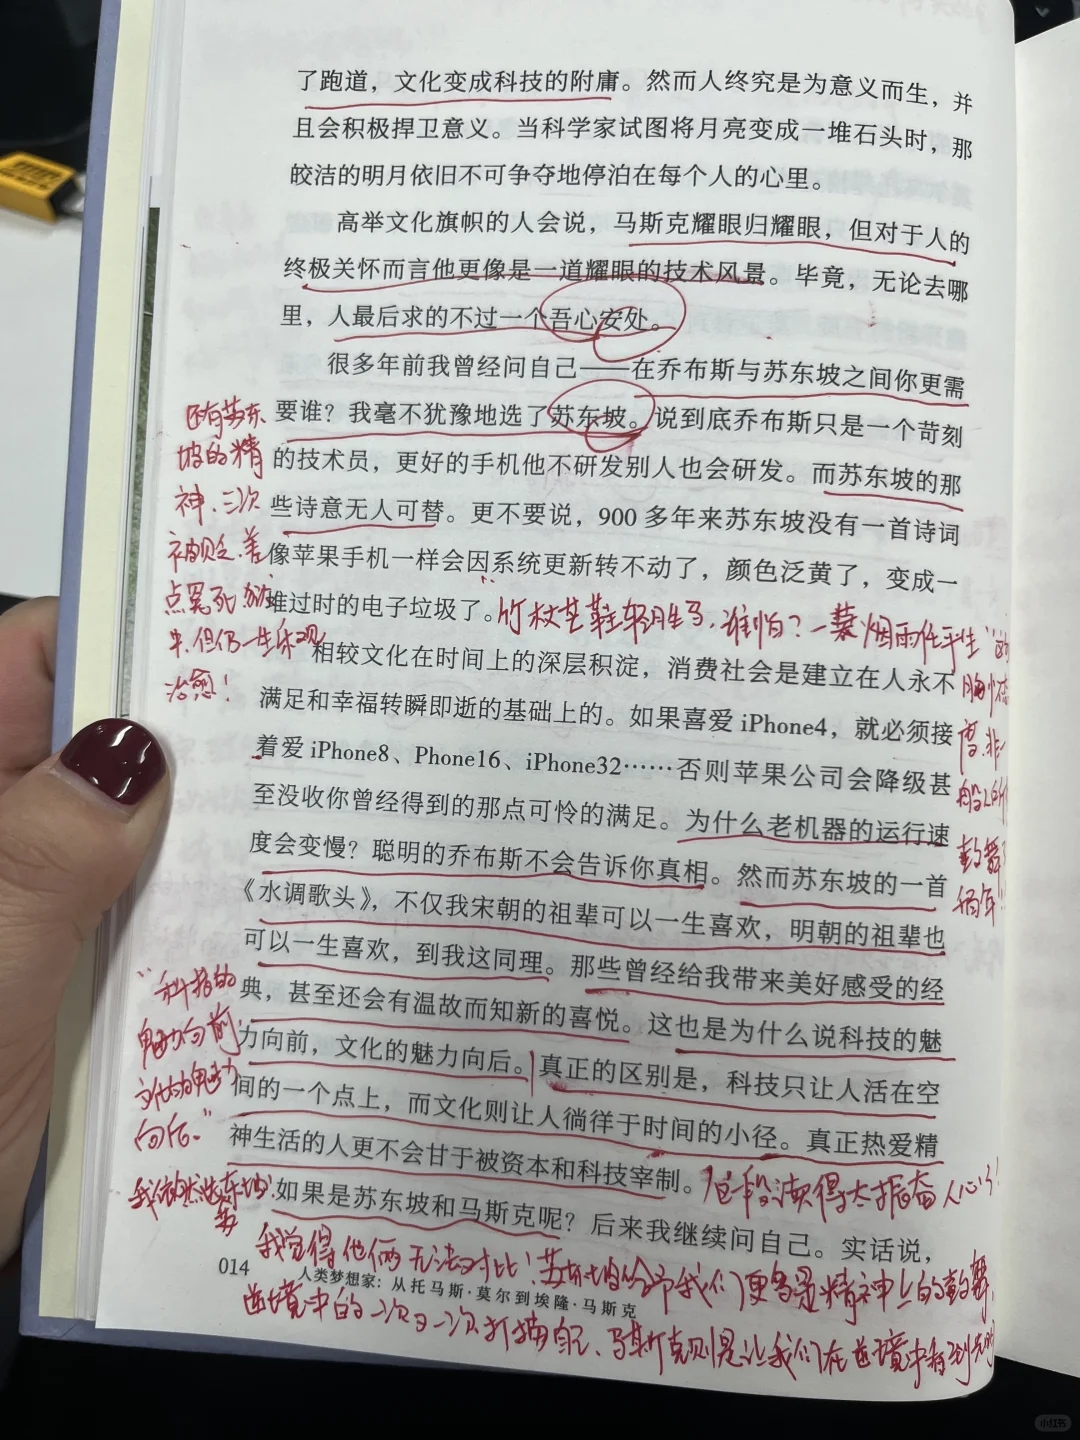 了跑道，文化变成科技的附庸。然而人终究是为意义而生，并
且会积极捍卫意义。当科学家试图将月亮变成一堆石头时，那
皎洁的明月依旧不可争夺地停泊在每个人的心里。
高举文化旗帜的人会说，马斯克耀眼归耀眼，但对于人的
终极关怀而言他更像是一道耀眼的技术风景。毕竟，无论去哪
里，人最后求的不过一个吾心安处。
很多年前我曾经问自己——在乔布斯与苏东坡之间你更需
要谁？我毫不犹豫地选了苏东坡。说到底乔布斯只是一个苛刻
的技术员，更好的手机他不研发别人也会研发。而苏东坡的那
些诗意无人可替。更不要说，900多年来苏东坡没有一首诗词
像苹果手机一样会因系统更新转不动了，颜色泛黄了，变成一
堆过时的电子垃圾了。
相较文化在时间上的深层积淀，消费社会是建立在人永不
满足和幸福转瞬即逝的基础上的。如果喜爱 iPhone4，就必须接
着爱 iPhone8、Phone16、iPhone32……否则苹果公司会降级甚
至没收你曾经得到的那点可怜的满足。为什么老机器的运行速
度会变慢？聪明的乔布斯不会告诉你真相。然而苏东坡的一首
《水调歌头》，不仅我宋朝的祖辈可以一生喜欢，明朝的祖辈也
可以一生喜欢，到我这同理。那些曾经给我带来美好感受的经
典，甚至还会有温故而知新的喜悦。这也是为什么说科技的魅
力向前，文化的魅力向后。真正的区别是，科技只让人活在空
间的一个点上，而文化则让人徜徉于时间的小径。真正热爱精
神生活的人更不会甘于被资本和科技宰制。
如果是苏东坡和马斯克呢？后来我继续问自己。实话说，
014
人类梦想家：从托马斯·莫尔到埃隆·马斯克
还有苏东
坡的精
神、三次
被贬、差
点冤死
但仍一生乐观
治愈！
"竹杖芒鞋轻胜马，谁怕？一蓑烟雨任平生"
"科技的
魅力向前，
文化的魅力
向后。"
我依然选苏东坡
这段读得太振奋人心了！
我觉得他俩无法对比！苏东坡给予我们更多是精神上的鼓舞，
逆境中的一次又一次打捞自己、马斯克则是让我们在逆境中看到光明
小红书